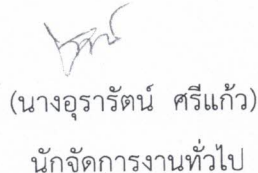 (นางอุรารัตน์ ศรีแก้ว)
นักจัดการงานทั่วไป